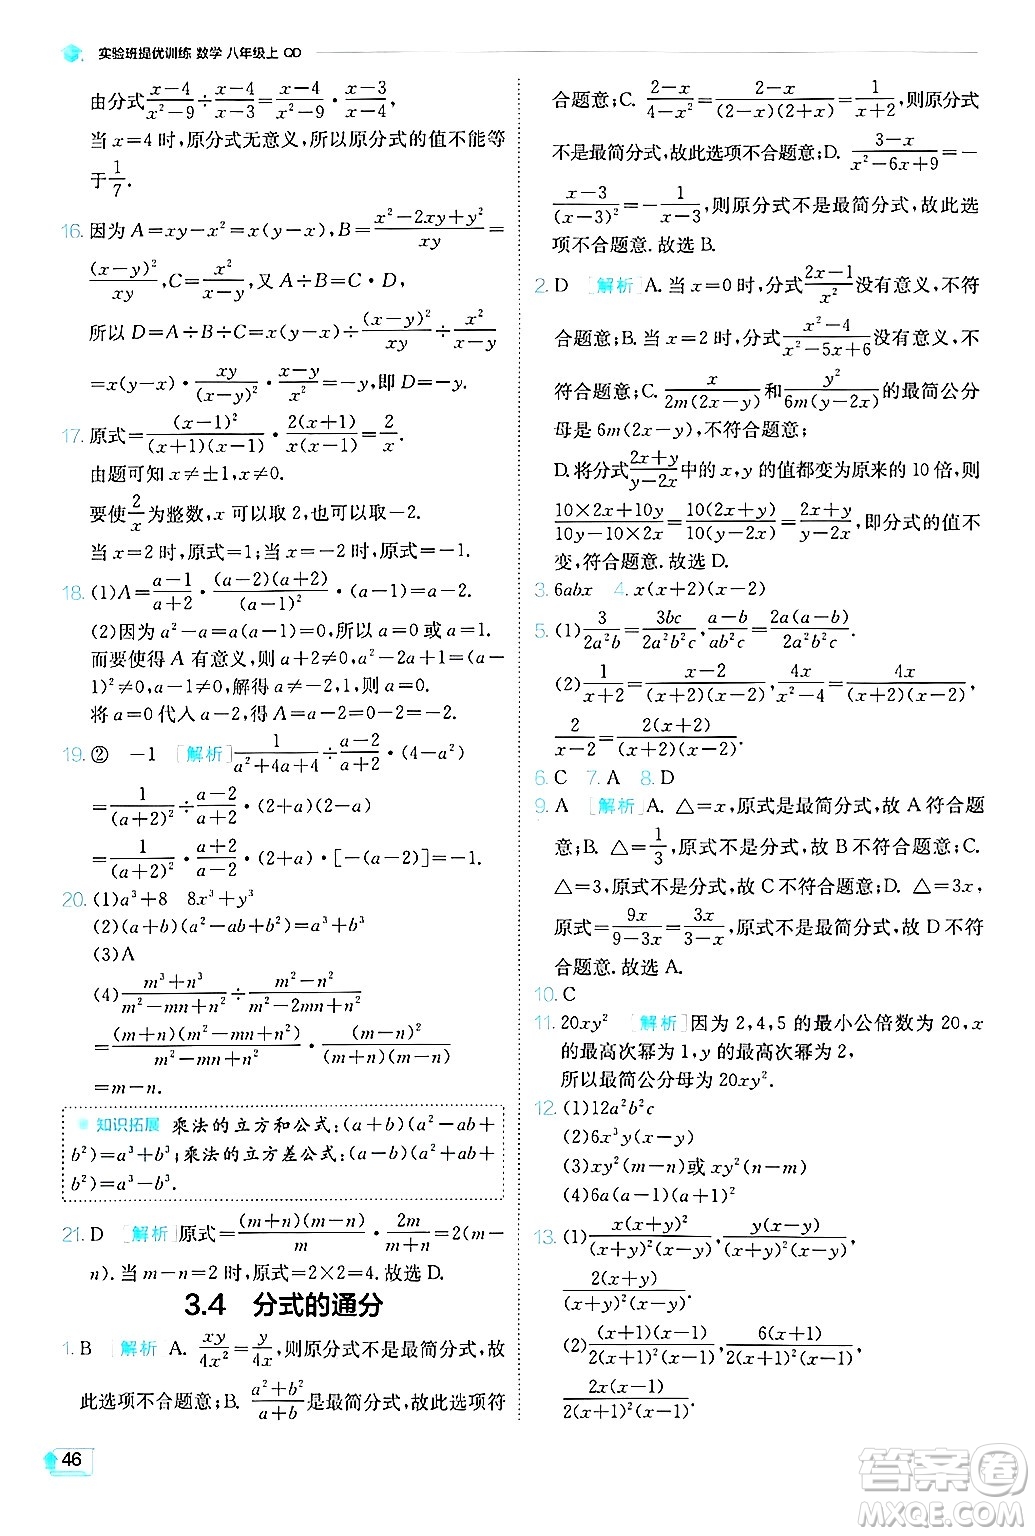 实验班提优训练 数学 八年级上 QD
由分式(x-4)/(x²-9)÷(x-4)/(x-3)=(x-4)/(x²-9)·(x-3)/(x-4),
当 x=4 时,原分式无意义,所以原分式的值不能等
于1/7.
16. 因为 A=xy-x²=x(y-x),B=(x²-2xy+y²)/xy=
(x-y)²/xy,C=x²/(x-y),又 A÷B=C·D,
所以 D=A÷B÷C=x(y-x)÷(x-y)²/xy÷x²/(x-y)
=x(y-x)·xy/(x-y)²·(x-y)/x²=-y,即 D=-y.
17. 原式=(x-1)²/((x+1)(x-1))·2(x+1)/(x(x-1))=2/x.
由题可知 x≠±1,x≠0.
要使2/x为整数,x 可以取 2,也可以取-2.
当 x=2 时,原式=1;当 x=-2 时,原式=-1.
18. (1)A=(a-1)/(a+2)·(a-2)(a+2)/(a-1)².
(2)因为 a²-a=a(a-1)=0,所以 a=0 或 a=1.
而要使得 A 有意义,则 a+2≠0,a²-2a+1=(a-
1)²≠0,解得 a≠-2,a≠1,所以 a=0.
将 a=0 代入 a-2,得 A=a-2=0-2=-2.
19. ② -1 [解析]1/(a²+4a+4)÷(a-2)/(a+2)·(4-a²)
=1/(a+2)²÷(a-2)/(a+2)·(2+a)(2-a)
=1/(a+2)²·(a+2)/(a-2)·(a+2)·[-(a-2)]=-1.
20. (1)a³+8 8x³+y³
(2)(a+b)(a²-ab+b²)=a³+b³
(3)A
(4)(m³+n³)/(m²-mn+n²)÷(m²+mn+n²)/(m³-n³)
=(m+n)(m²-mn+n²)/(m²-mn+n²)·(m-n)(m²+mn+n²)/(m²+mn+n²)
=(m+n)(m-n).
知识拓展 乘法的立方和公式:(a+b)(a²-ab+
b²)=a³+b³;乘法的立方差公式:(a-b)(a²+ab+
b²)=a³-b³.
21. D [解析]原式=(m+n)(m-n)/m·2m/(m+n)=2(m-
n).当 m-n=2 时,原式=2×2=4.故选 D.
3.4 分式的通分
1. B [解析] A. xy/4x²=y/4x,则原分式不是最简分式,故
此选项不合题意;B. (a²+b²)/(a+b)是最简分式,故此选项符
合题意;C. (2-x)/(4-x²)=(2-x)/((2-x)(2+x))=1/(x+2),则原分式
不是最简分式,故此选项不合题意;D. (3-x)/(x²-6x+9)=-
(x-3)/(x-3)²=-1/(x-3),则原分式不是最简分式,故此选
项不合题意.故选 B.
2. D [解析] A. 当 x=0 时,分式(2x-1)/x²没有意义,不符
合题意;B. 当 x=2 时,分式(x²-4)/(x²-5x+6)没有意义,不
符合题意;C. x/(2m(2x-y))和y²/(6m(y-2x))的最简公分
母是 6m(2x-y),不符合题意;
D.将分式(2x+y)/(y-2x)中的 x,y 的值都变为原来的 10 倍,则
(10×2x+10y)/(10y-10×2x)=10(2x+y)/10(y-2x)=(2x+y)/(y-2x),即分式的值不
变,符合题意.故选 D.
3. 6abx 4. x(x+2)(x-2)
5. (1)3/2a²b=3bc/2a²b²c,(a-b)/ab²c=2a(a-b)/2a²b²c.
(2)1/(x+2)=(x-2)/((x+2)(x-2)),4x/(x²-4)=4x/((x+2)(x-2)),
2/(x-2)=2(x+2)/((x+2)(x-2)).
6. C 7. A 8. D
9. A [解析] A. △=x,原式是最简分式,故 A 符合题
意;B. △=1/3,原式是分式,故 B 不符合题意;C.
△=3,原式是分式,故 C 不符合题意;D. △=3x,
原式=9x/(9-3x)=3x/(3-x),原式不是最简分式,故 D 不符
合题意.故选 A.
10. C
11. 20xy² [解析]因为 2,4,5 的最小公倍数为 20,x
的最高次幂为 1,y 的最高次幂为 2,
所以最简公分母为 20xy².
12. (1)12a²b²c
(2)6x³y(x-y)
(3)xy²(m-n)或 xy²(n-m)
(4)6a(a+1)²(a-1)²
13. (1)x(x+y)²/((x+y)²(x-y)),y(x+y)(x-y)/((x+y)²(x-y)),
2(x-y)/((x+y)²(x-y))
(2)(x+1)(x-1)/(2(x+1)²(x-1)),6(x+1)/(2(x+1)²(x-1)),
2x(x-1)/(2(x+1)²(x-1))
46
答案圈
MXQE.COM